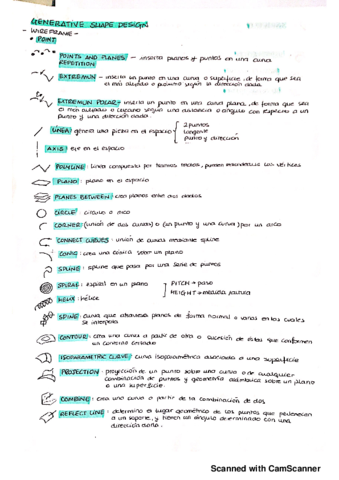 GENERATIVE SHAPE DESIGN
- WIREFRAME -
- POINT
POINTS AND PLANES - inserta planos y puntos en una curva
REPETITION
EXTREMUN - inserta un punto en una curva o superficie, de forma que sea
el más alejado o próximo según la dirección dada.
EXTREMUN POLAR - inserta un punto en una curva plana, de forma que sea
el más alejado o cercano según una distancia o ángulo con respecto a un
punto y una dirección dada.
LÍNEA: genera una pieza en el espacio
2 puntos
tangente
punto y dirección
AXIS: eje en el espacio
POLYLINE: línea compuesta por tramos rectos, pueden redondearse los vértices
PLANO: plano en el espacio
PLANES BETWEEN: crea planos entre dos dados
CIRCLE: círculo o arco
CORNER: (unión de dos curvas) o (un punto y una curva) por un arco
CONNECT CURVES: unión de curvas mediante spline
CONIC: crea una cónica sobre un plano
SPLINE: spline que pasa por una serie de puntos
SPIRAL: espiral en un plano
PITCH → paso
HELIX: hélice
HEIGHT →
SPINE: curva que atraviesa planos de forma normal o varias en los cuales
se interpola
CONTOUR: crea una curva a partir de otra o sucesión de éstas que conformen
un contorno cerrado
ISOPARAMETRIC CURVE: curva isoparamétrica asociada a una superficie
PROJECTION: proyección de un punto sobre una curva o de cualquier
combinación de puntos y geometría alámbrica sobre un plano
o una superficie.
COMBINE: crea una curva a partir de la combinación de dos
REFLECT LINE: determina el lugar geométrico de los puntos que pertenecen
a un soporte, y tienen un ángulo determinado con una
dirección dada.
Scanned with CamScanner